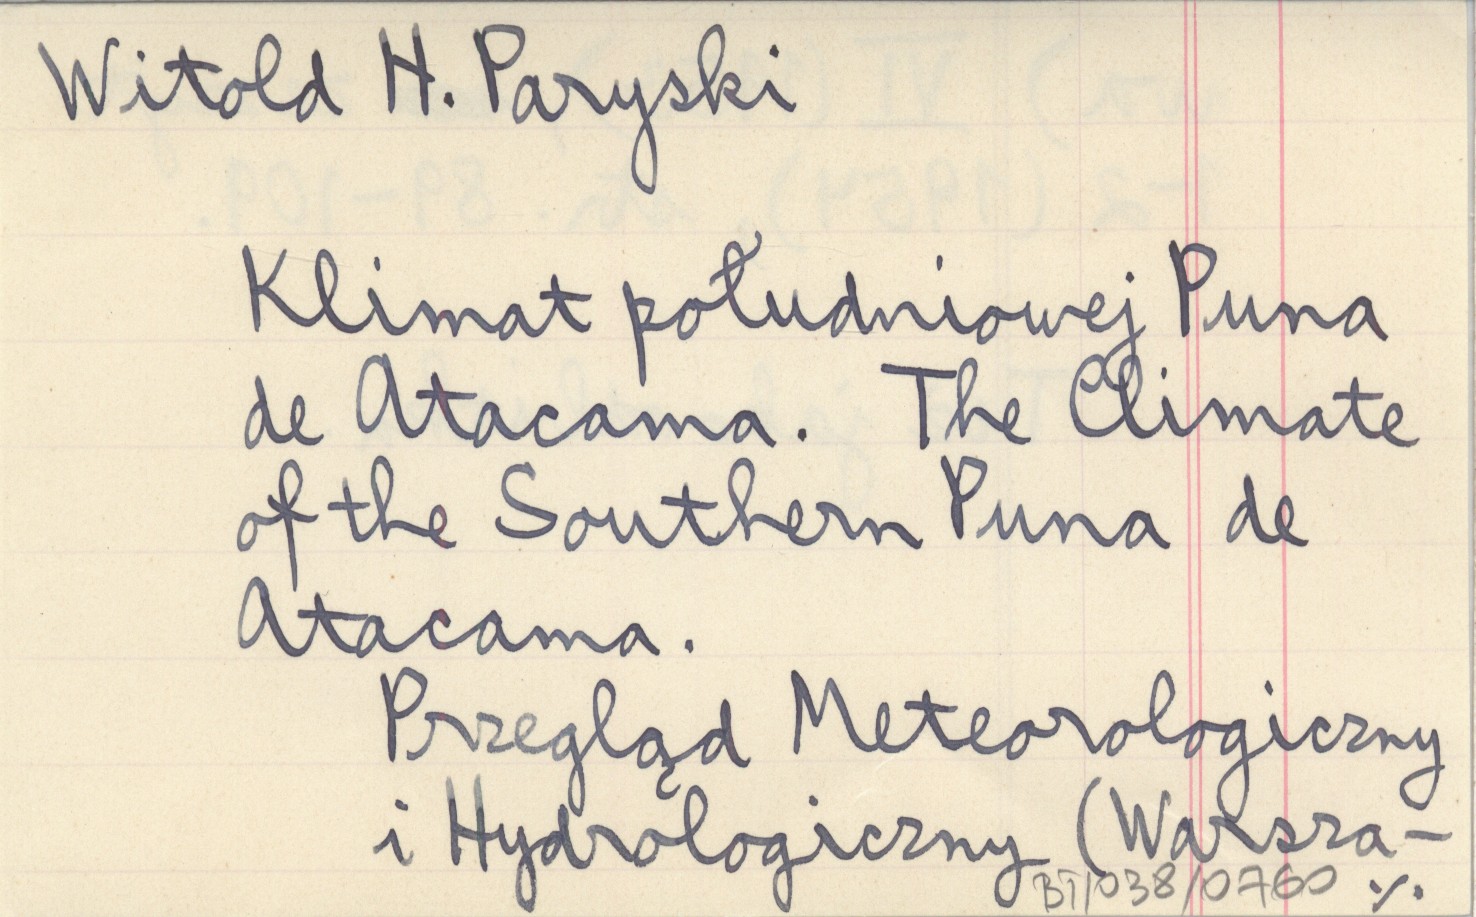 Witold H. Paryski
Klimat południowej Puna
de Atacama. The Climate
of the Southern Puna de
Atacama.
Przegląd Meteorologiczny
i Hydrologiczny (Warsza-
BT/038/0760 ·/.